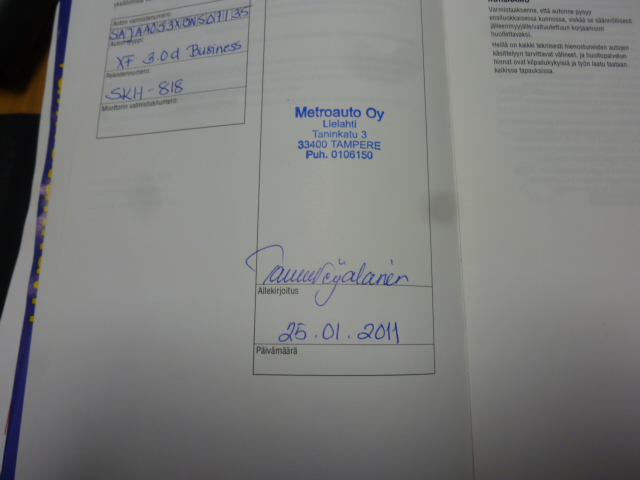 Auton valmistenumero:
XF 3.0d Business
Rekisterinumero:
SKH-818
Moottorin valmistenumero:
Metroauto Oy
Lielahti
Taninkatu 3
33400 TAMPERE
Puh. 0106150
Allekirjoitus
25.01.2011
Päivämäärä
Varmistaaksenne, että autonne pysyy
ensiluokkaisessa kunnossa, viekää se säännöllisesti
jälleenmyyjälle/valtuutettuun korjaamoon
huollettavaksi.
Heillä on kaikki teknisesti hienostuneiden autojen
käsittelyyn tarvittavat välineet, ja huoltopalvelun
hinnat ovat kilpailukykyisiä ja työn laatu taataan
kaikissa tapauksissa.